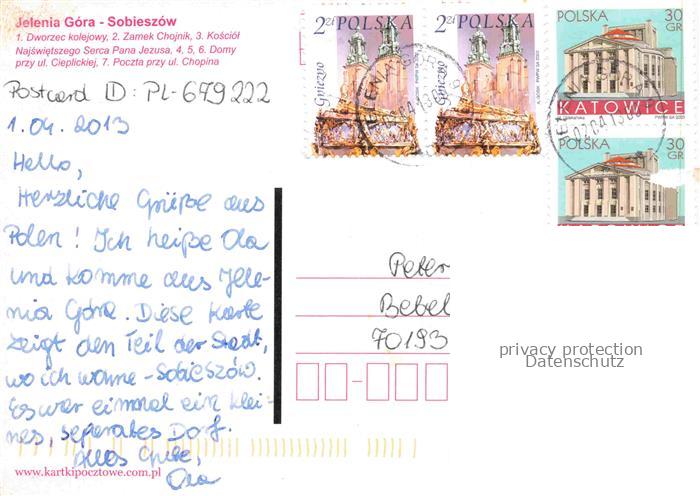 Jelenia Góra - Sobieszów
1. Dworzec kolejowy, 2. Zamek Chojnik, 3. Kościół
Najświętszego Serca Pana Jezusa, 4, 5, 6. Domy
przy ul. Cieplickiej, 7. Poczta przy ul. Chopina
Postcard ID: PL-679222
1.04.2013
Hello,
Herzliche Grüße aus
Polen! Ich heiße Ola
und komme aus Jele-
nia Góra. Diese Karte
zeigt den Teil der Stadt,
wo ich wohne - Sobieszów.
Es war eimmal ein klei-
nes, seperates Dorf.
Alles Gute,
Ola
www.kartkipocztowe.com.pl
2zł POLSKA
Gniezno
2zł POLSKA
Gniezno
POLSKA 30
GR
KATOWICE
POLSKA 30
GR
Peter
Bebel
70193
privacy protection
Datenschutz